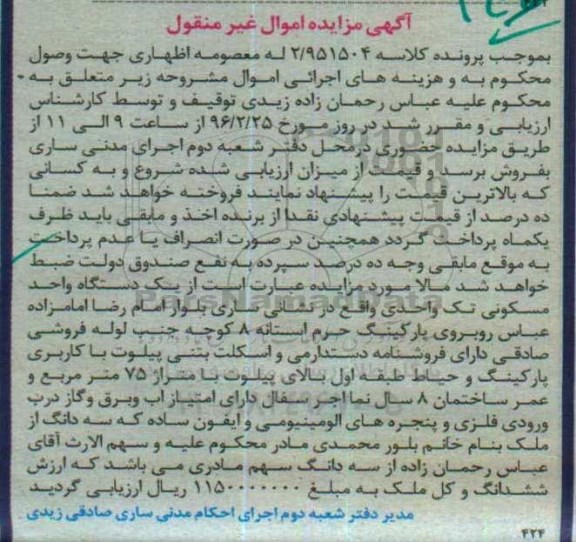 آگهی مزایده اموال غیر منقول
بموجب پرونده کلاسه ۲/۹۵۱۵۰۴ له معصومه اظهاری جهت وصول
محکوم به و هزینه های اجرائی اموال مشروحه زیر متعلق به
محکوم علیه عباس رحمان زاده زیدی توقیف و توسط کارشناس
ارزیابی و مقرر شد در روز مورخ ۹۶/۲/۲۵ از ساعت ۹ الی ۱۱ از
طریق مزایده حضوری درمحل دفتر شعبه دوم اجرای مدنی ساری
بفروش برسد و قیمت از میزان ارزیابی شده شروع و به کسانی
که بالاترین قیمت را پیشنهاد نمایند فروخته خواهد شد ضمنا
ده درصد از قیمت پیشنهادی نقدا از برنده اخذ و مابقی باید ظرف
یکماه پرداخت گردد همچنین در صورت انصراف یا عدم پرداخت
به موقع مابقی وجه ده درصد سپرده به نفع صندوق دولت ضبط
خواهد شد مالا مورد مزایده عبارت است از یک دستگاه واحد
مسکونی تک واحدی واقع در نشانی ساری بلوار امام رضا امامزاده
عباس روبروی پارکینگ حرم استانه ۸ کوچه جنب لوله فروشی
صادقی دارای فروشنامه دستدارمی و اسکلت بتنی پیلوت با کاربری
پارکینگ و حیاط طبقه اول بالای پیلوت با متراژ ۷۵ متر مربع و
عمر ساختمان ۸ سال نما اجر سفال دارای امتیاز اب وبرق وگاز درب
ورودی فلزی و پنجره های الومینیومی و آیفون ساده که سه دانگ از
ملک بنام خانم بلور محمدی مادر محکوم علیه و سهم الارث آقای
عباس رحمان زاده از سه دانگ سهم مادری می باشد که ارزش
ششدانگ و کل ملک به مبلغ ۱۱۵۰۰۰۰۰۰۰ ریال ارزیابی گردید
مدیر دفتر شعبه دوم اجرای احکام مدنی ساری صادقی زیدی
۴۲۴
ParsNamadData